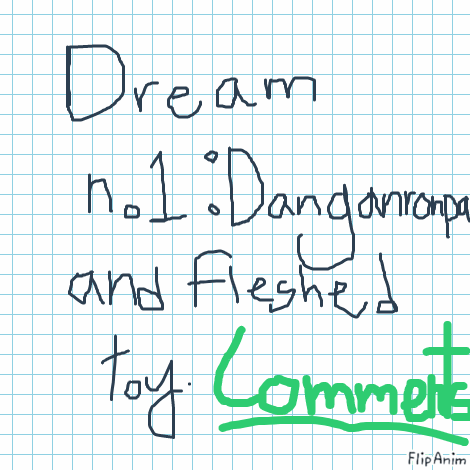 Dream
no.1: Danganronpa
and fleshed
toy. Comments
FlipAnim